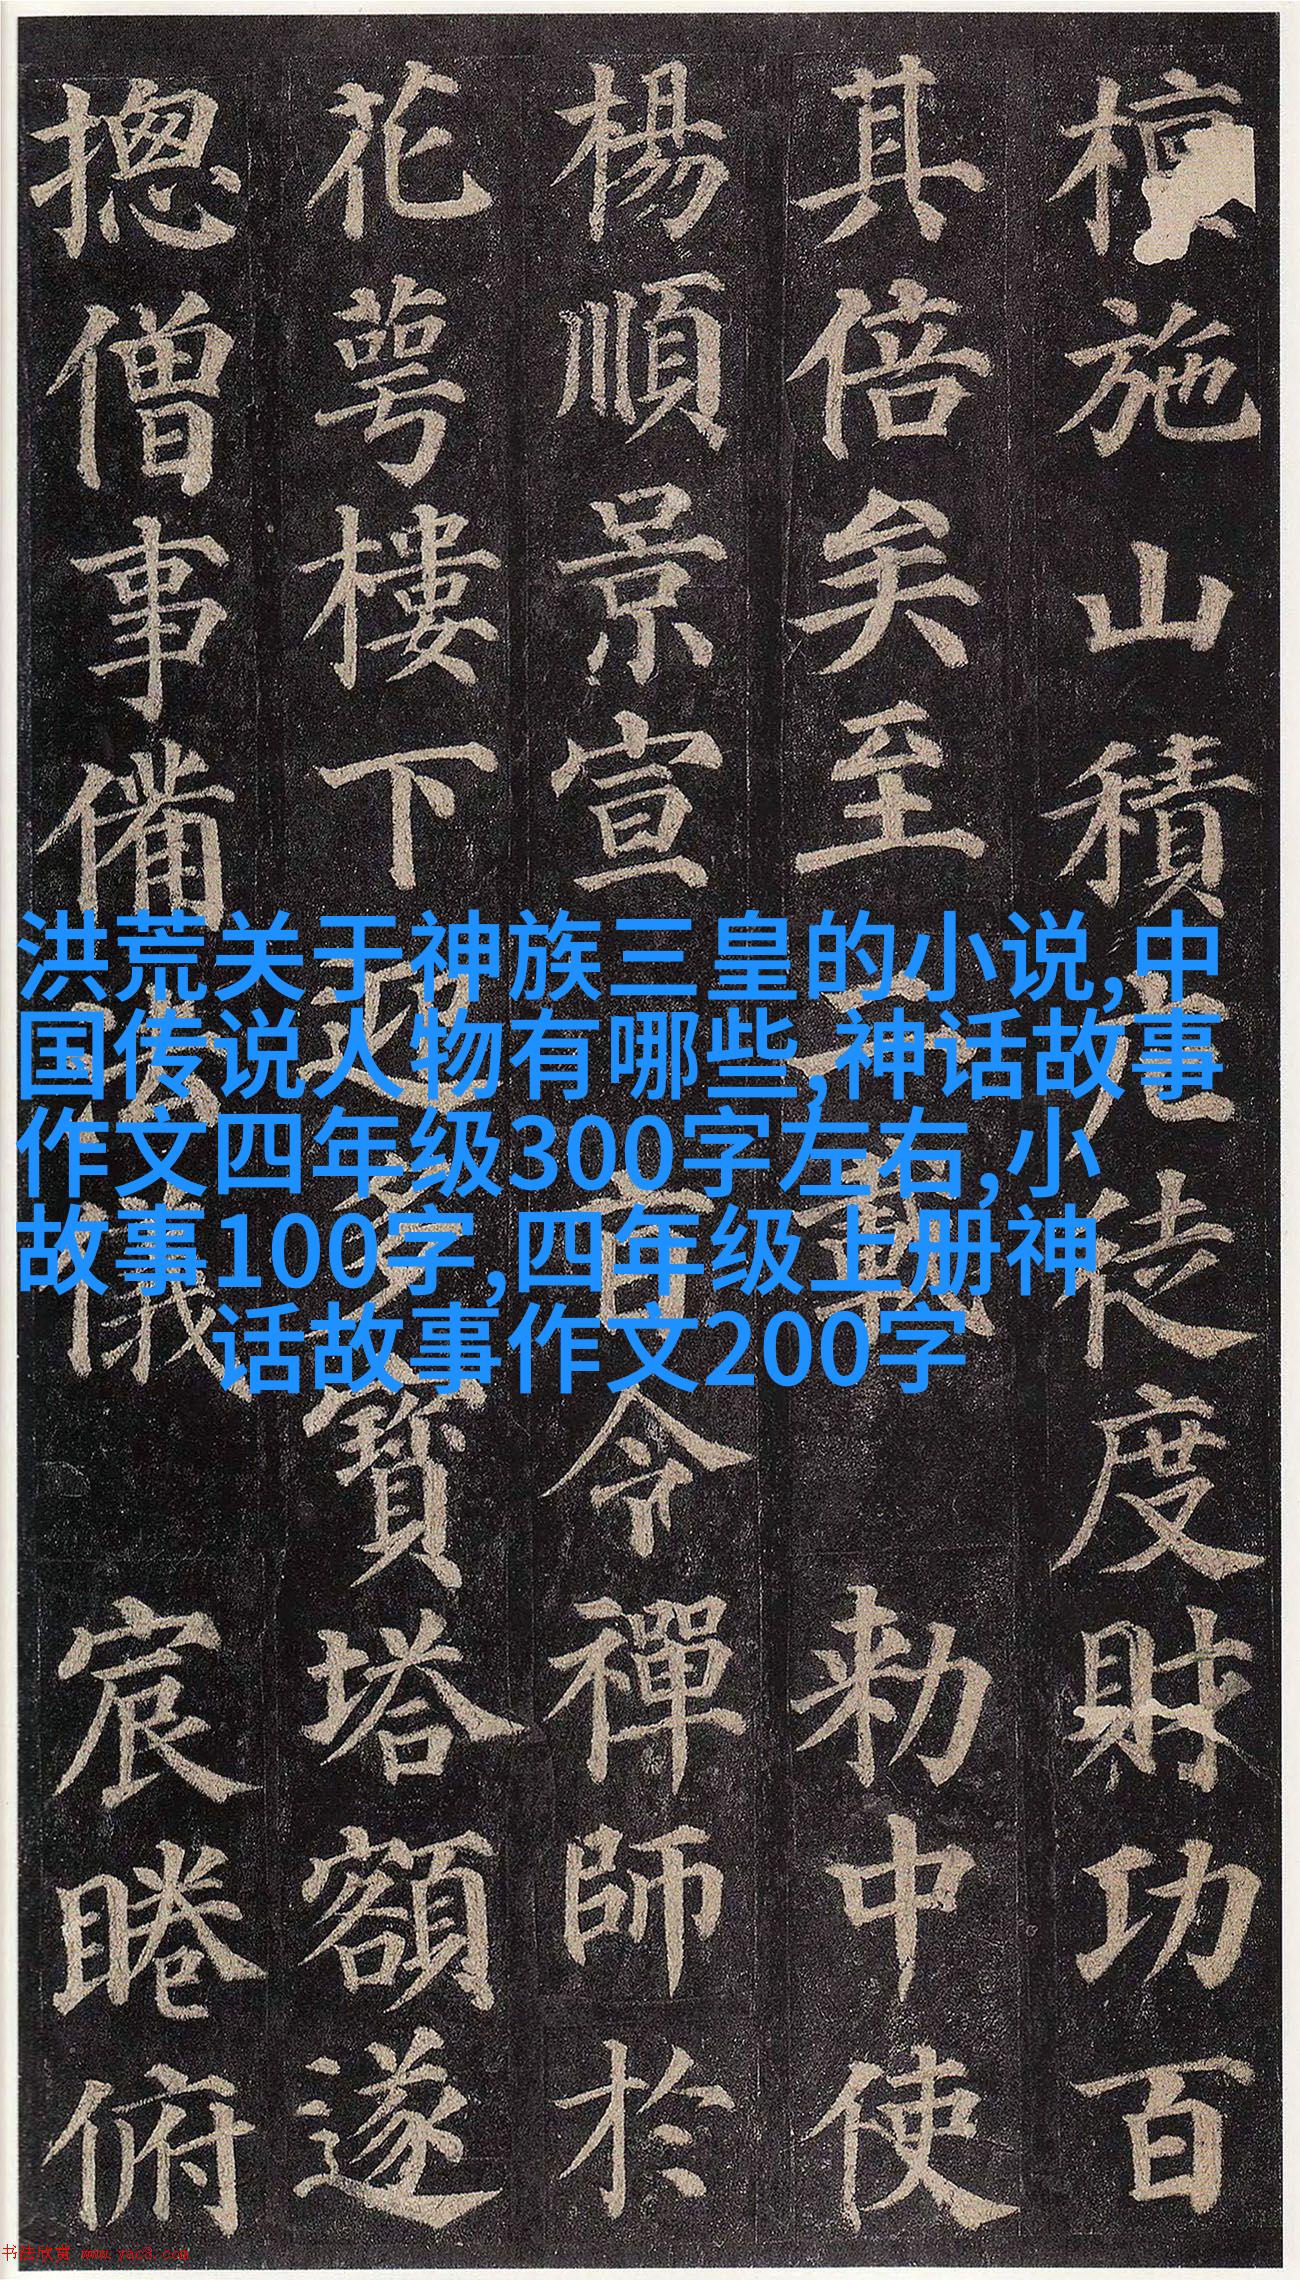 檀施山積庀徒度財功百
其倍矣至二載勑中使
楊順景宣旨令禪師於
花萼樓下迎多寶塔額遂
摠僧事備法儀宸睠俯
洪荒关于神族三皇的小说,中
国传说人物有哪些,神话故事
作文四年级300字左右,小
故事100字,四年级上册神
话故事作文200字
书法欣赏 www.yac3.com